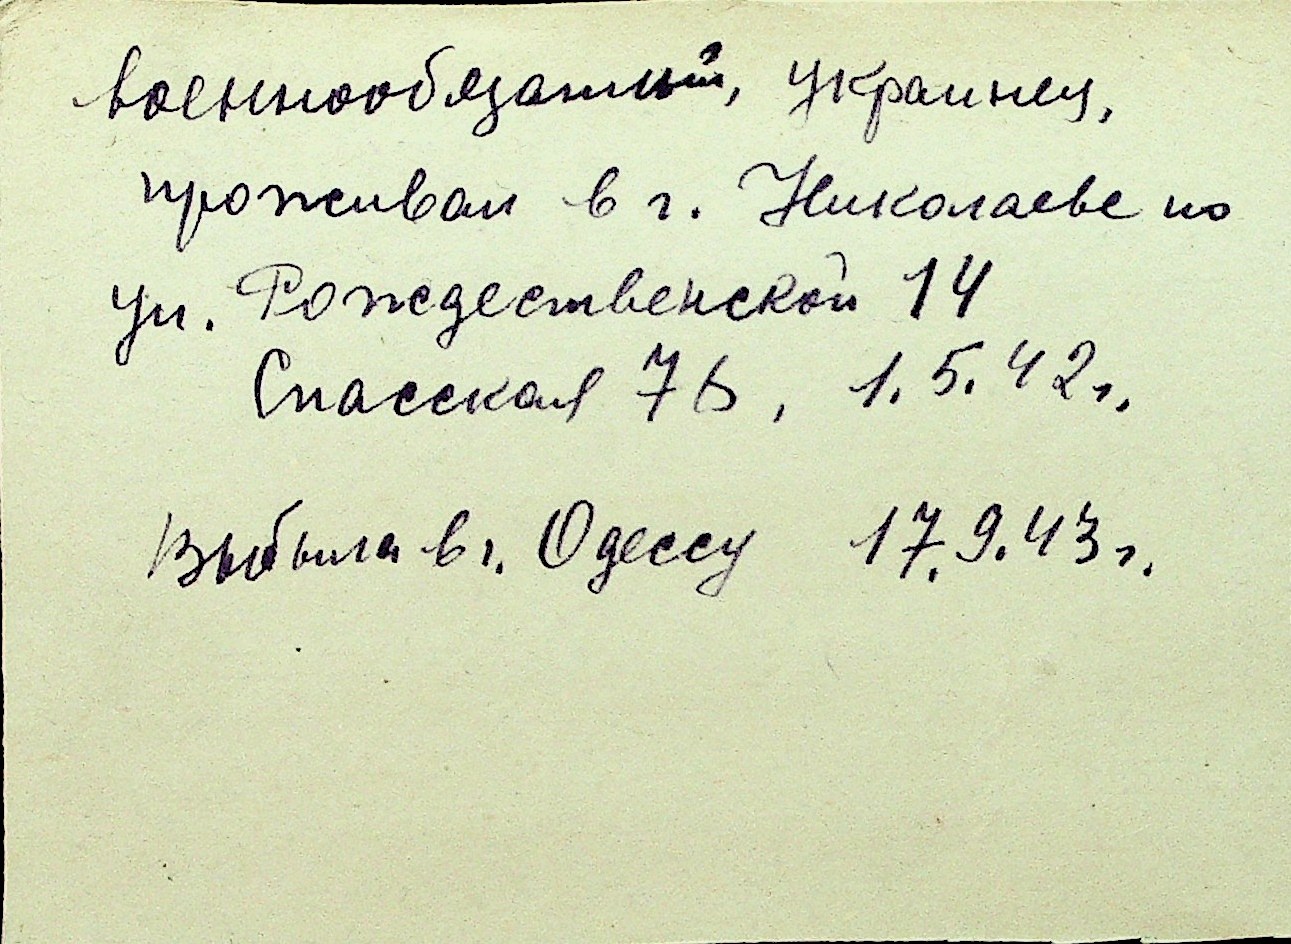 военнообязанный, украинец,
проживал в г. Николаеве по
ул. Рождественской 14
Спасская 7Б, 1.5.42г.
Выбыла в г. Одессу 17.9.43г.